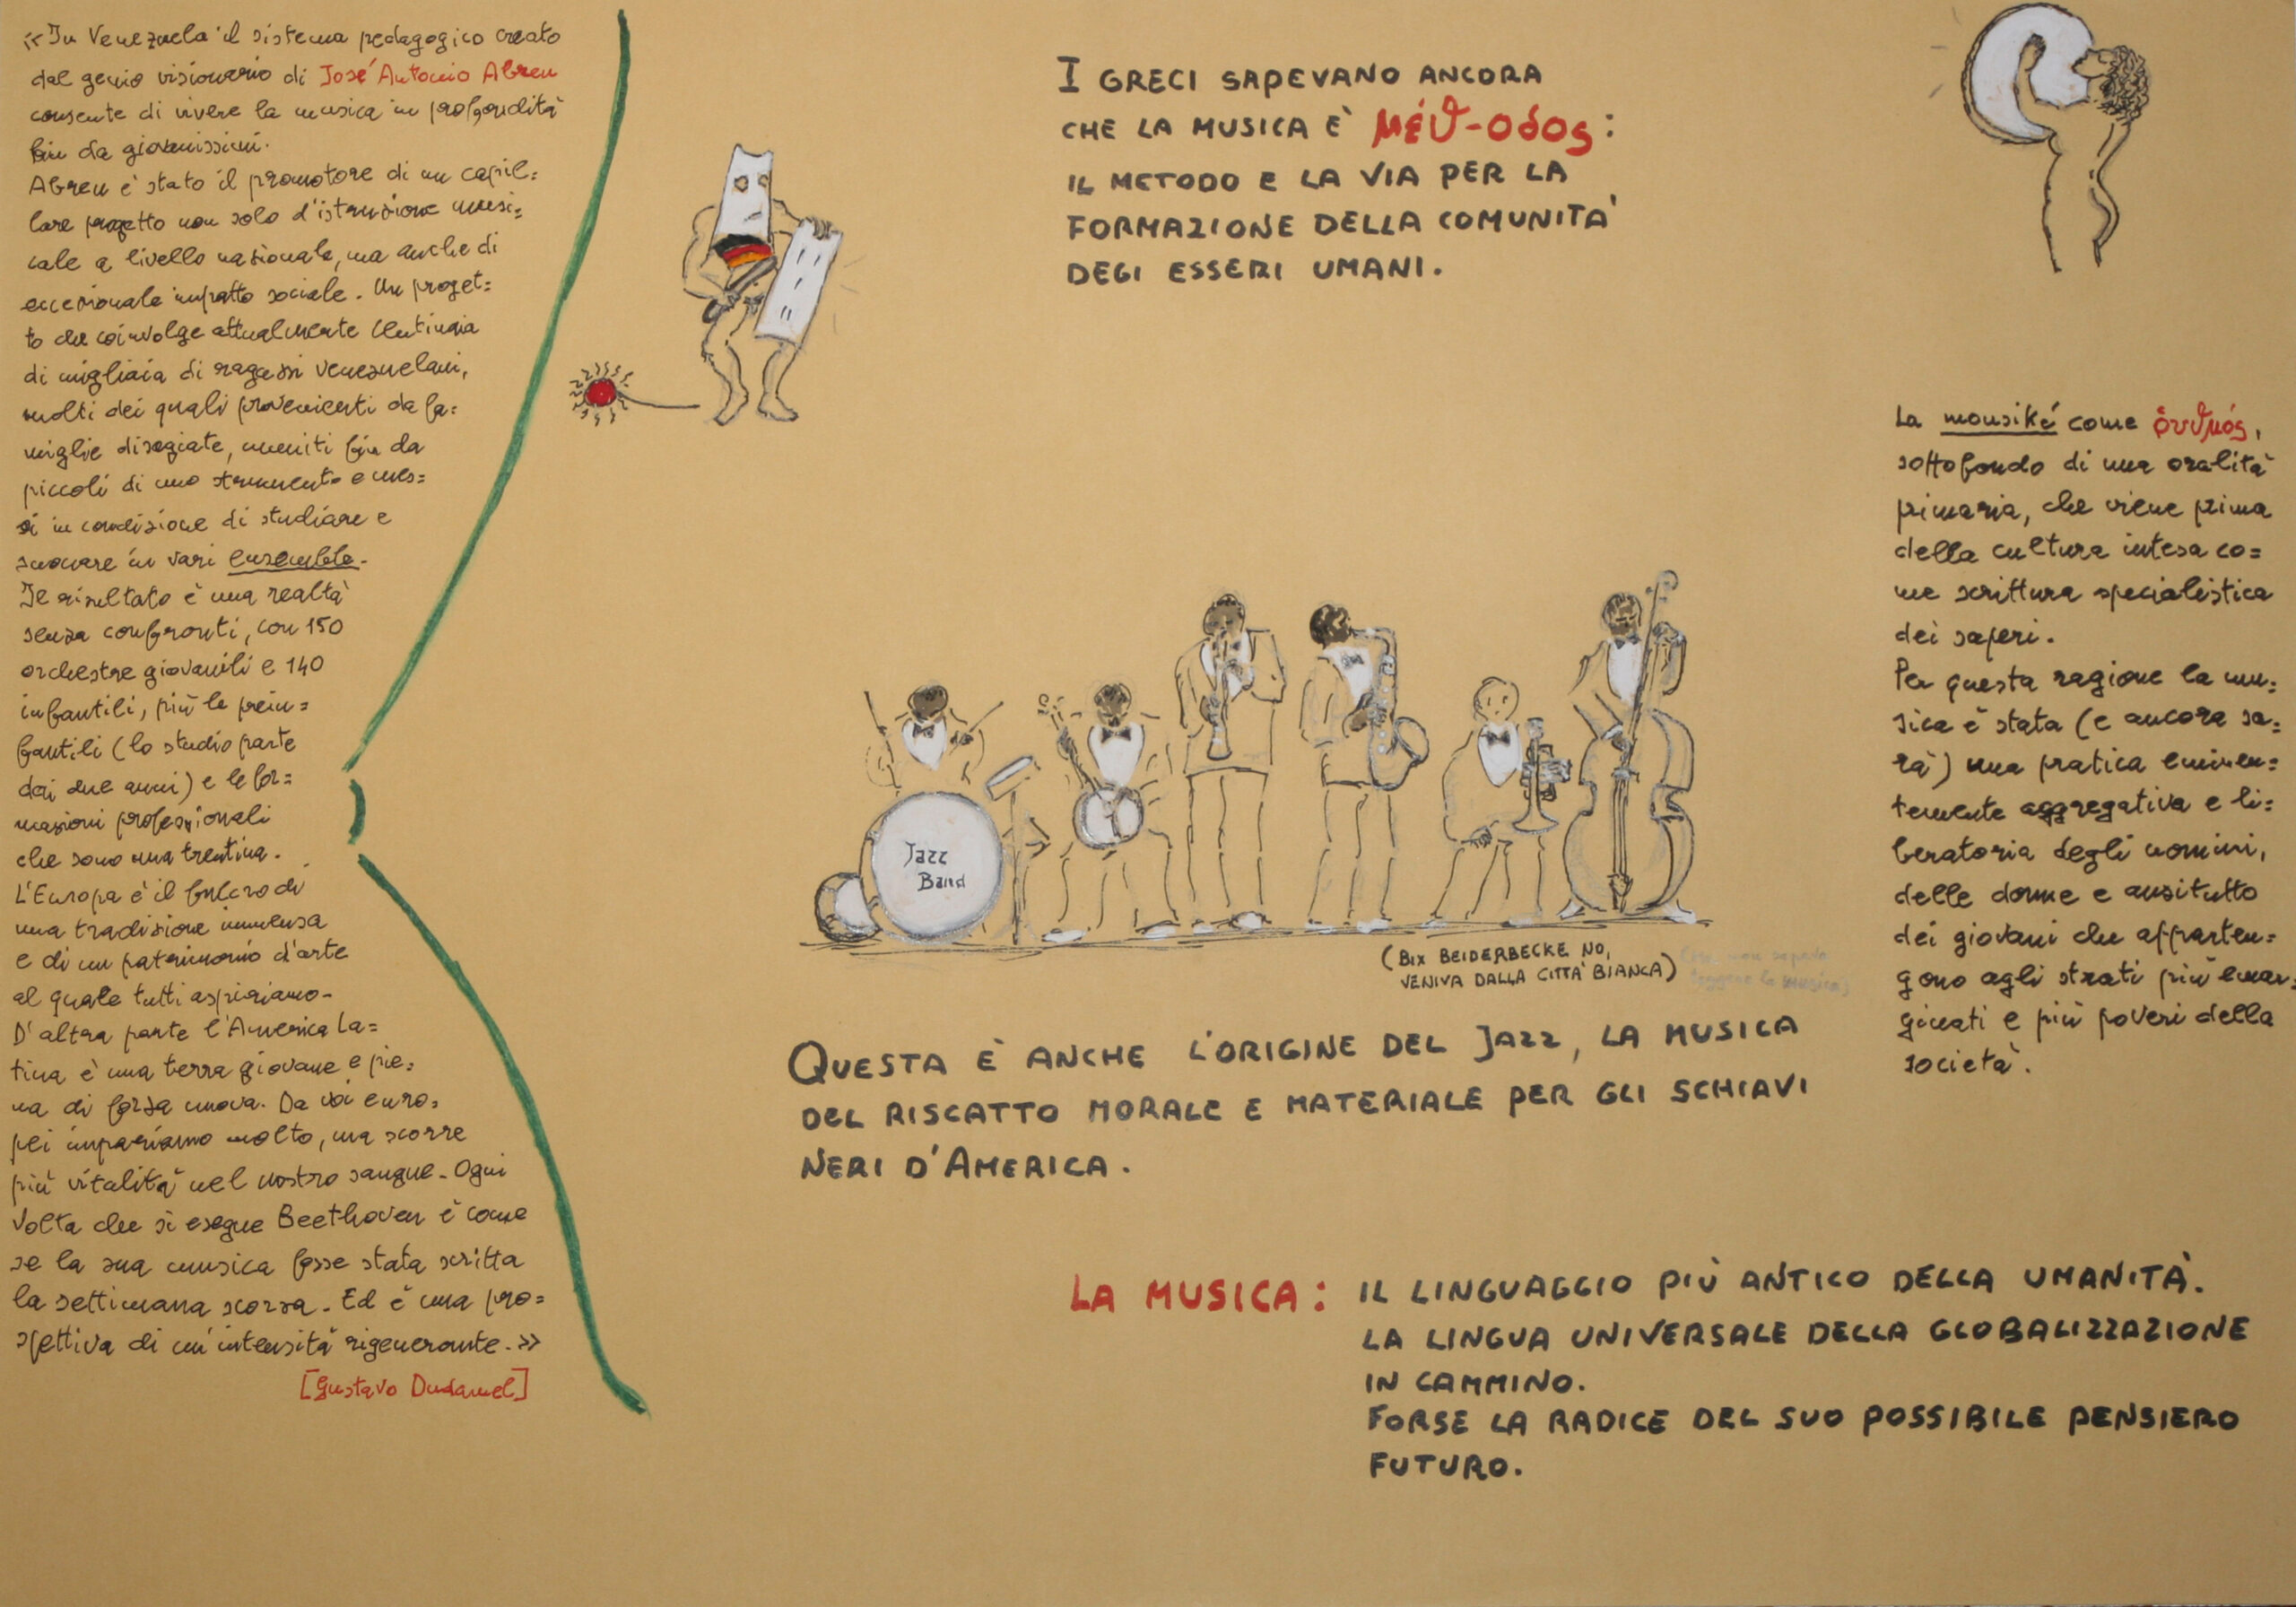 «In Venezuela il sistema pedagogico creato
dal genio visionario di José Antonio Abreu
consente di vivere la musica in profondità
fin da giovanissimi.
Abreu è stato il promotore di un capil=
lare progetto non solo d'istruzione musi=
cale a livello nazionale, ma anche di
eccezionale impatto sociale. Un proget=
to che coinvolge attualmente centinaia
di migliaia di ragazzi venezuelani,
molti dei quali provenienti da fa=
miglie disagiate, muniti fin da
piccoli di uno strumento e mes=
si in condizione di studiare e
suonare in vari ensemble.
Il risultato è una realtà
senza confronti, con 150
orchestre giovanili e 140
infantili, più le prein=
fantili (lo studio parte
dai due anni) e le for=
mazioni professionali
che sono una trentina.
L'Europa è il fulcro di
una tradizione immensa
e di un patrimonio d'arte
al quale tutti aspiriamo.
D'altra parte l'America La=
tina è una terra giovane e pie=
na di forza nuova. Da voi euro=
pei impariamo molto, ma scorre
più vitalità nel nostro sangue. Ogni
volta che si esegue Beethoven è come
se la sua musica fosse stata scritta
la settimana scorsa. Ed è una pro=
spettiva di un'intensità rigenerante.»
[Gustavo Dudamel]
I GRECI SAPEVANO ANCORA
CHE LA MUSICA È μέϑ-οδος:
IL METODO E LA VIA PER LA
FORMAZIONE DELLA COMUNITA'
DEGI ESSERI UMANI.
Jazz
Band
(BIX BEIDERBECKE NO,
VENIVA DALLA CITTÀ BIANCA)
QUESTA È ANCHE L'ORIGINE DEL JAZZ, LA MUSICA
DEL RISCATTO MORALE E MATERIALE PER GLI SCHIAVI
NERI D'AMERICA.
LA MUSICA: IL LINGUAGGIO PIÙ ANTICO DELLA UMANITÀ.
LA LINGUA UNIVERSALE DELLA GLOBALIZZAZIONE
IN CAMMINO.
FORSE LA RADICE DEL SUO POSSIBILE PENSIERO
FUTURO.
La mousiké come ῥυϑμός,
sottofondo di una oralità
primaria, che viene prima
della cultura intesa co=
me scrittura specialistica
dei saperi.
Per questa ragione la mu=
sica è stata (e ancora sa=
rà) una pratica eminen=
temente aggregativa e li=
beratoria degli uomini,
delle donne e anzitutto
dei giovani che apparten=
gono agli strati più emar=
ginati e più poveri della
società.